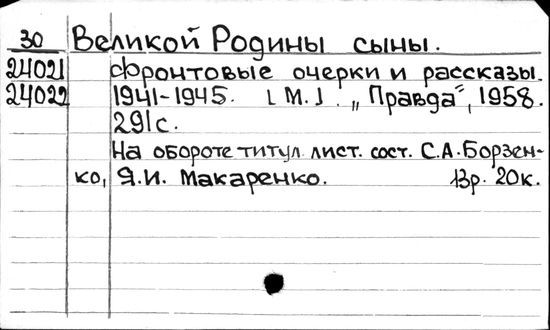 30 Великой Родины сыны.
24021 Фронтовые очерки и рассказы.
24022 1941-1945. [М.]. „Правда", 1958.
291с.
На обороте титул. лист. сост. С.А.Борзен-
ко, Я.И. Макаренко. 13р. 20к.